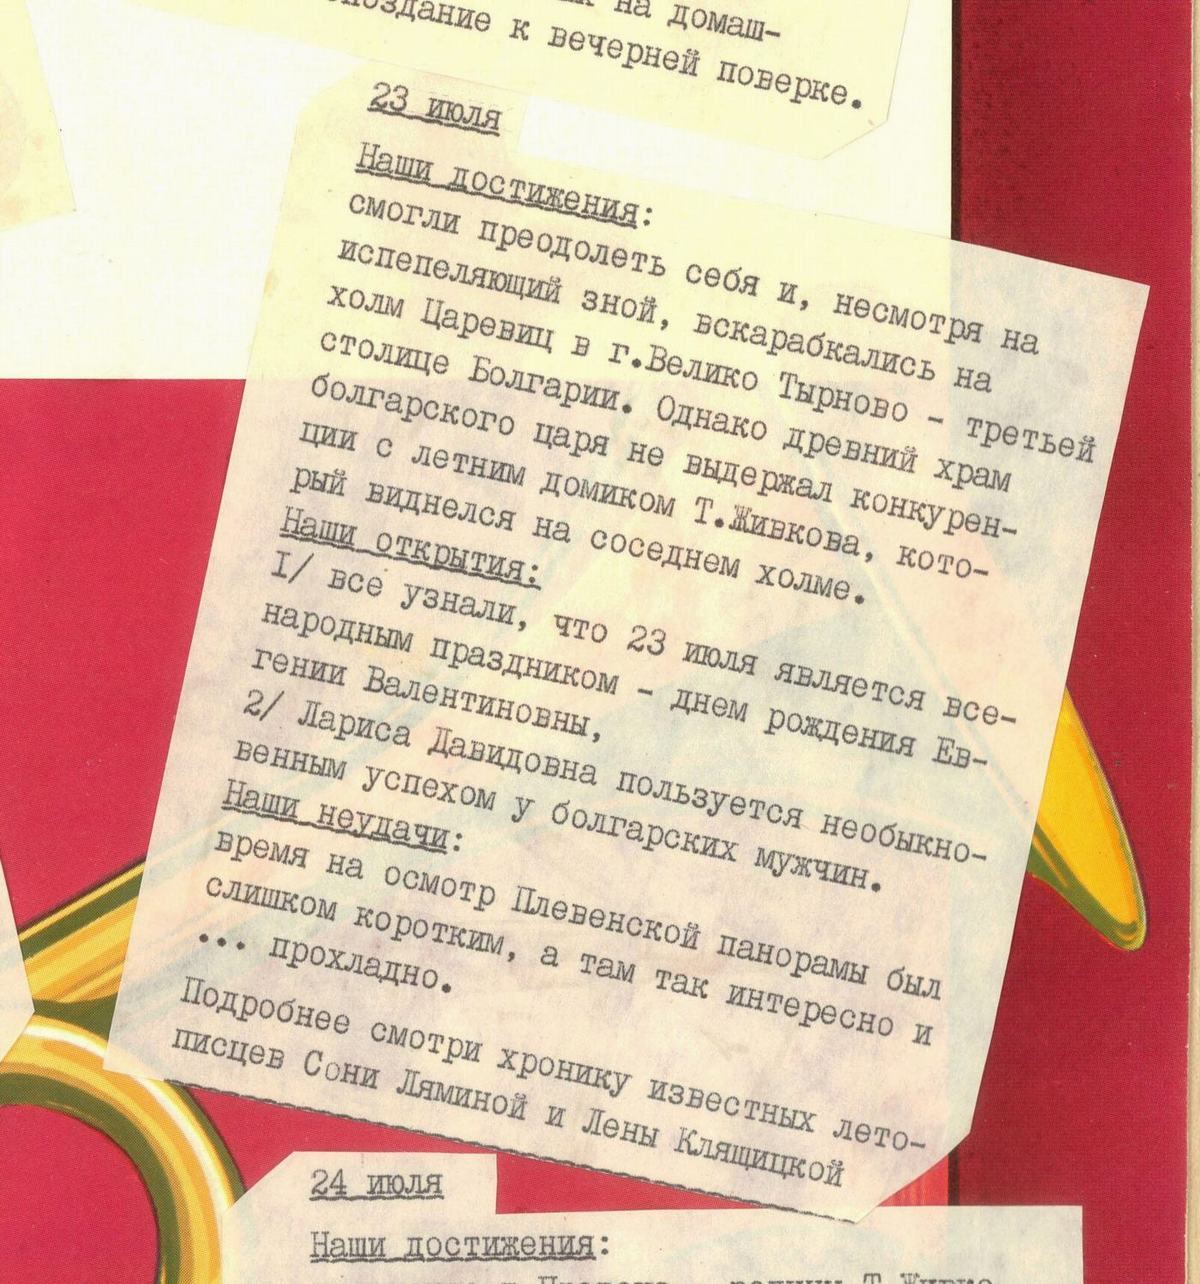 на домаш-
к вечерней поверке.
23 июля
Наши достижения:
смогли преодолеть себя и, несмотря на
испепеляющий зной, вскарабкались на
холм Царевиц в г.Велико Тырново - третьей
столице Болгарии. Однако древний храм
болгарского царя не выдержал конкурен-
ции с летним домиком Т.Живкова, кото-
рый виднелся на соседнем холме.
Наши открытия:
I/ все узнали, что 23 июля является все-
народным праздником - днем рождения Ев-
гении Валентиновны,
2/ Лариса Давидовна пользуется необыкно-
венным успехом у болгарских мужчин.
Наши неудачи:
время на осмотр Плевенской панорамы был
слишком коротким, а там так интересно и
... прохладно.
Подробнее смотри хронику известных лето-
писцев Сони Ляминой и Лены Клящицкой
24 июля
Наши достижения: